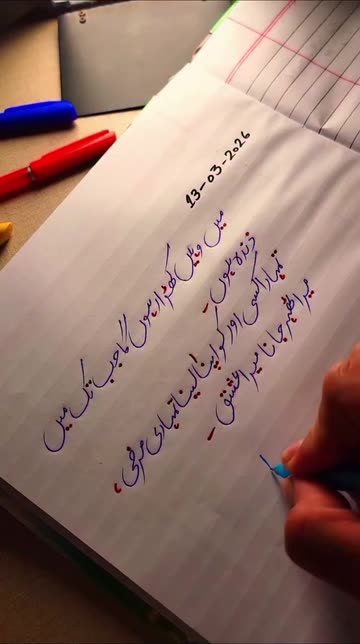 13-03-2026
میں وہیں کھڑا رہوں گا جب تک میں
زندہ ہوں۔
تمہارا کسی اور کو اپنا لینا تمہاری مرضی،
میرا ٹھہر جانا میرا عشق۔